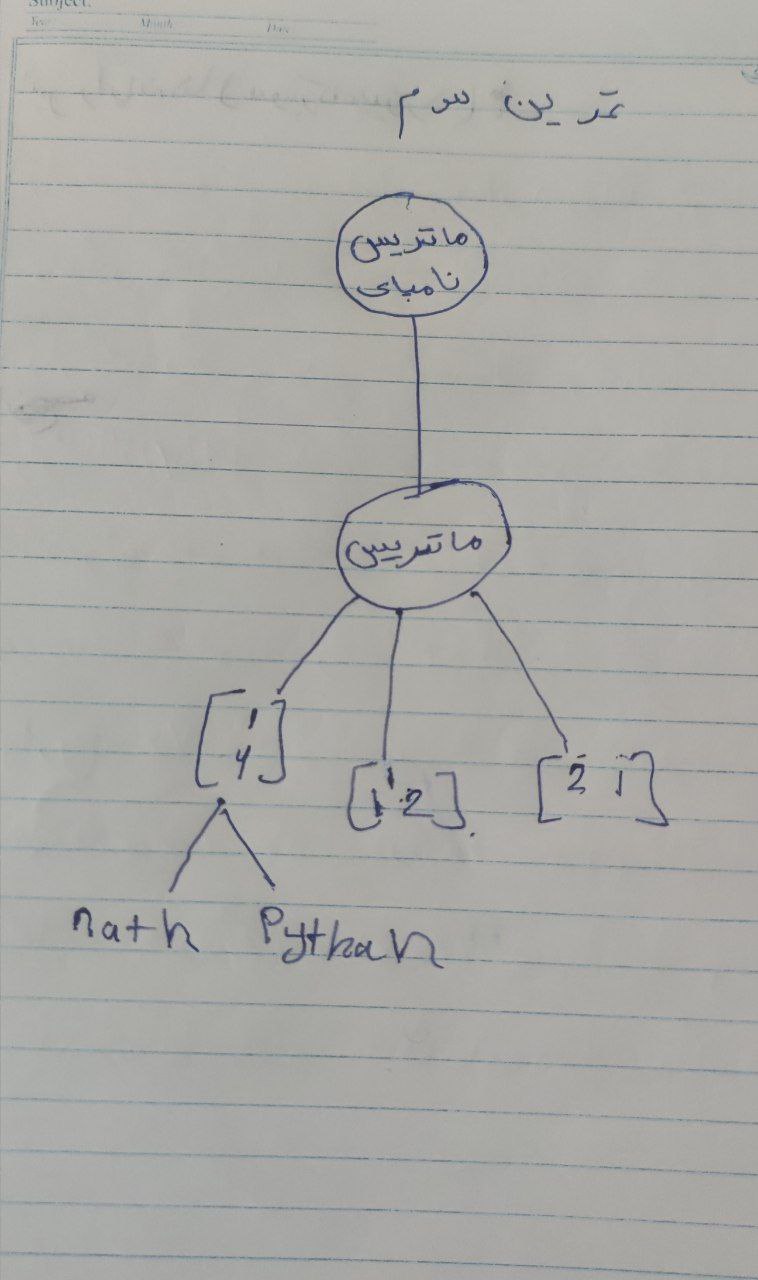 Subject:
Year Month Date
تمرین سوم
ماتریس
نامپای
ماتریس
[1
4]
[1 2]
[2 1]
math Pythan